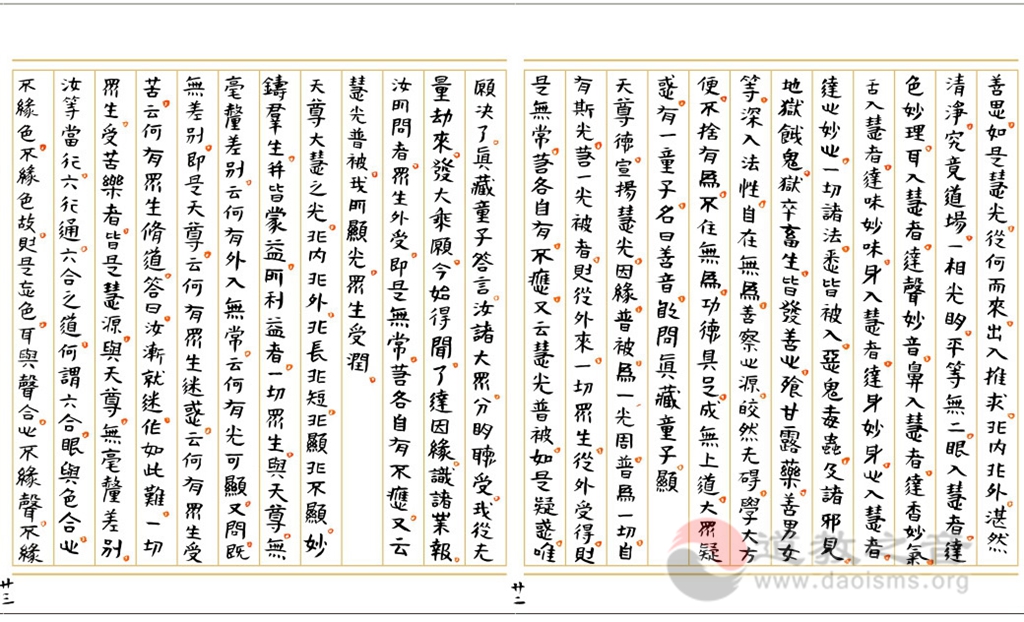 善思如是慧光從何而來出入推求非內非外湛然
清淨究竟道場一相光明平等無二眼入慧者達
色妙理耳入慧者達聲妙音鼻入慧者達香妙氣
舌入慧者達味妙味身入慧者達身妙身心入慧者
達心妙心一切諸法悉皆被入惡鬼毒蟲及諸邪見
地獄餓鬼獄卒畜生皆發善心飡甘露藥善男女
等深入法性自在無為善察心源皎然无碍學大方
便不捨有為不住無為功德具足成無上道大眾疑
惑有一童子名曰善音即問真藏童子顯
天尊德宣揚慧光因緣普被為一光周普為一切自
有斯光若一光被者則從外來一切眾生從外受得則
是無常若各自有不應又云慧光普被如是疑惑唯
願決了真藏童子答言汝諸大眾分明聽受我從无
量劫來發大乘願今始得聞了達因緣識諸業報
汝所問者眾生外受即是無常若各自有不應又云
慧光普被我所顯光眾生受潤
天尊大慧之光非內非外非長非短非顯非不顯妙
鑄羣生并皆蒙益所利益者一切眾生與天尊無
毫釐差別云何有外入無常云何有光可顯又問既
無差別即是天尊云何有眾生迷惑云何有眾生受
苦云何有眾生脩道答曰汝漸就迷作如此難一切
眾生受苦樂者皆是慧源與天尊無毫釐差別
汝等當行六行通六合之道何謂六合眼與色合心
不緣色不緣色故則是忘色耳與聲合心不緣聲不緣
廿二
廿三
道教之音
www.daoisms.org